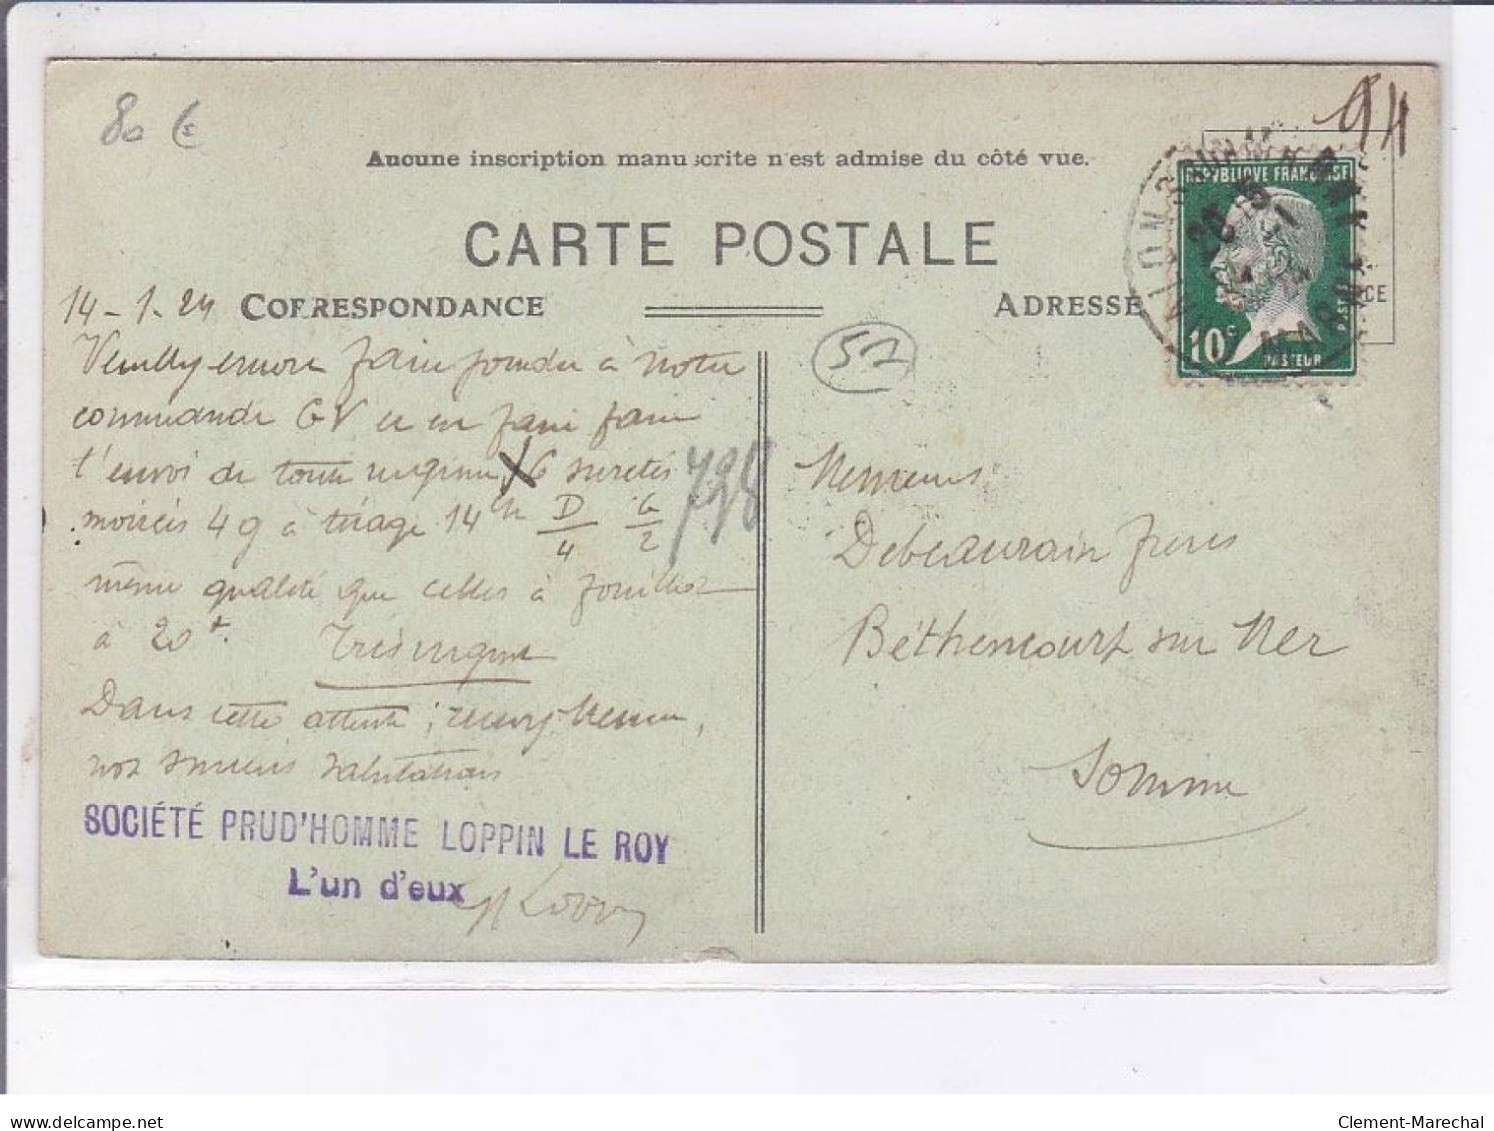 80 €
94
Aucune inscription manuscrite n'est admise du côté vue.
RÉPUBLIQUE FRANÇAISE
10c
PASTEUR
CARTE POSTALE
14-1-24 CORRESPONDANCE
ADRESSE
51
Veuillez encore faire joindre à notre
commande GV et en faire faire
l'envoi de toute urgence, 6 suretés
798
moirées 4 g à tirage 14 D/4 G/2
même qualité que celles à
à 20
Très urgent
Dans cette attente, recevez Messieurs,
nos sincères salutations
SOCIÉTÉ PRUD'HOMME LOPPIN LE ROY
L'un d'eux
Messieurs
Debeaurain frères
Béthencourt sur Mer
Somme
delcampe.net
Clement-Marechal